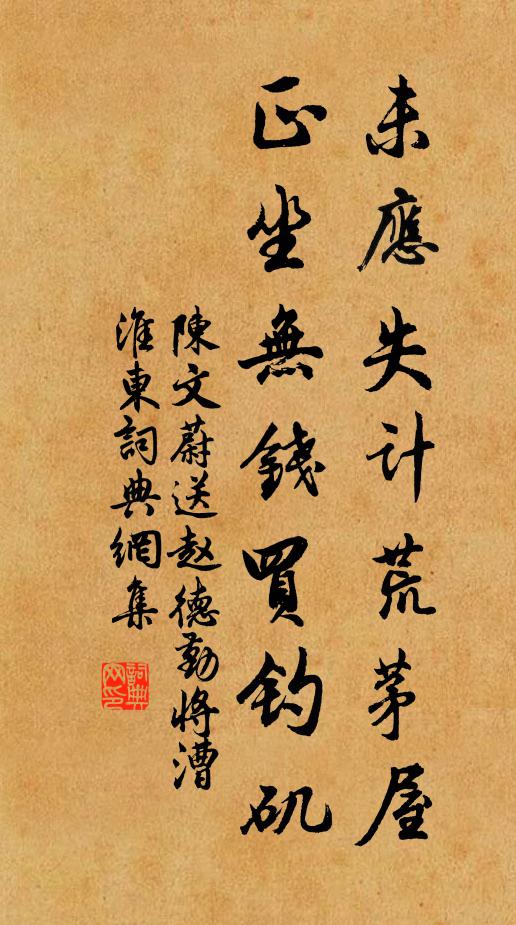 未應失计荒茅屋
正坐無錢買钓矶
陳文蔚送赵德勤将漕
淮東詞典網集
詞典网印